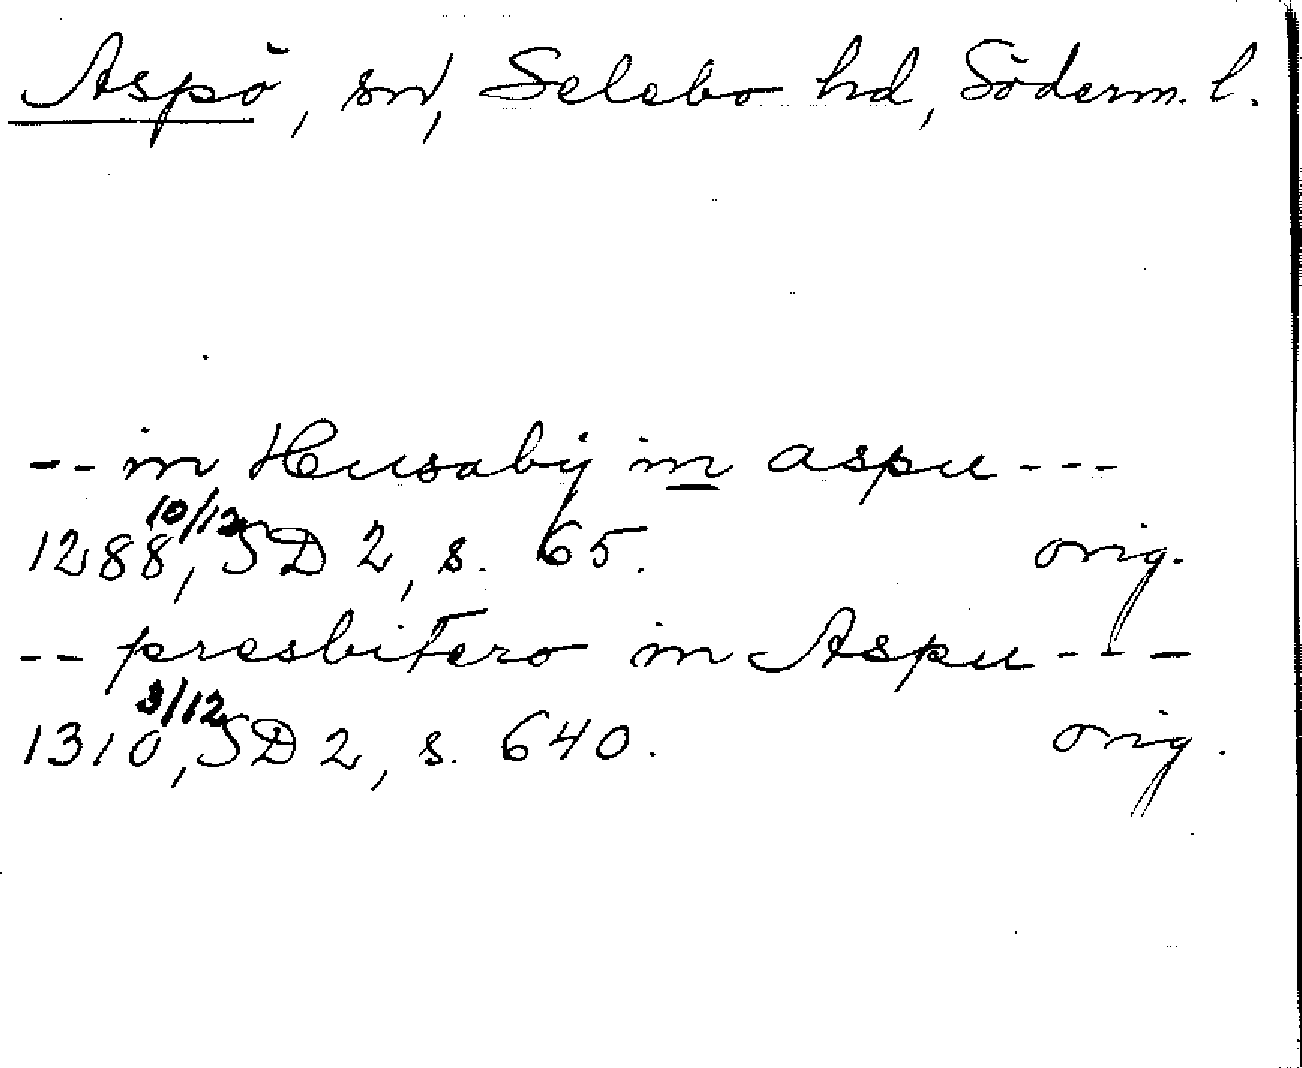 Aspö, sn, Selebo hd, Söderm. l.
-- in Husabij in aspu ---
1288 10/12, SD 2, s. 65. orig.
-- presbitero in Aspu ---
1310 3/12, SD 2, s. 640. orig.